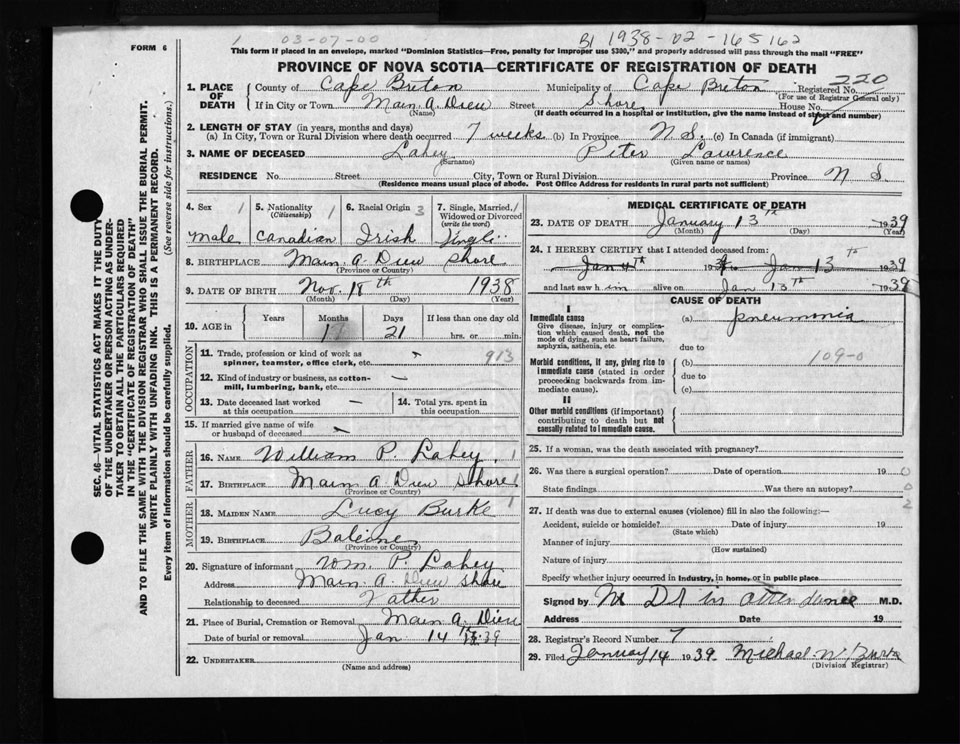 1 03-07-00 B1 1938-02-165162
FORM 6
This form if placed in an envelope, marked "Dominion Statistics—Free, penalty for improper use $300," and properly addressed will pass through the mail "FREE"
PROVINCE OF NOVA SCOTIA—CERTIFICATE OF REGISTRATION OF DEATH
1. PLACE OF DEATH
County of Cape Breton Municipality of Cape Breton Registered No. 220
(For use of Registrar General only)
If in City or Town Main. A. Dieu Street Shore House No.
(Name) (If death occurred in a hospital or institution, give the name instead of street and number)
2. LENGTH OF STAY (in years, months and days)
(a) In City, Town or Rural Division where death occurred 7 weeks (b) In Province N.S. (c) In Canada (if immigrant)
3. NAME OF DECEASED Lahey Peter Lawrence
(Surname) (Given name or names)
RESIDENCE No. Street City, Town or Rural Division Province N S.
(Residence means usual place of abode. Post Office Address for residents in rural parts not sufficient)
4. Sex 1 male
5. Nationality (Citizenship) 1 Canadian
6. Racial Origin 3 Irish
7. Single, Married, Widowed or Divorced (write the word) Single
8. BIRTHPLACE Main. a. Dieu Shore
(Province or Country)
9. DATE OF BIRTH Nov. 18th 1938
(Month) (Day) (Year)
10. AGE in Years Months 1 Days 21 If less than one day old
hrs. or min.
OCCUPATION
11. Trade, profession or kind of work as spinner, teamster, office clerk, etc. 913
12. Kind of industry or business, as cotton-mill, lumbering, bank, etc. —
13. Date deceased last worked at this occupation —
14. Total yrs. spent in this occupation
15. If married give name of wife or husband of deceased —
FATHER
16. NAME William P. Lahey 1
17. BIRTHPLACE Main. A Dieu Shore 1
(Province or Country)
MOTHER
18. MAIDEN NAME Lucy Burke 1
19. BIRTHPLACE Baleine
(Province or Country)
20. Signature of informant Wm. P. Lahey
Address Main. A. Dieu Shore
Relationship to deceased Father
21. Place of Burial, Cremation or Removal Main a. Dieu
Date of burial or removal Jan 14th 1939
22. UNDERTAKER
(Name and address)
MEDICAL CERTIFICATE OF DEATH
23. DATE OF DEATH January 13th 1939
(Month) (Day) (Year)
24. I HEREBY CERTIFY that I attended deceased from:
Jan 4th 19 to Jan 13th 1939
and last saw h im alive on Jan 13th 1939
CAUSE OF DEATH
I
Immediate cause
Give disease, injury or complication which caused death, not the mode of dying, such as heart failure, asphyxia, asthenia, etc.
(a) pneumonia
due to
Morbid conditions, if any, giving rise to immediate cause (stated in order proceeding backwards from immediate cause).
(b) 109-0
due to
(c)
II
Other morbid conditions (if important) contributing to death but not causally related to immediate cause.
25. If a woman, was the death associated with pregnancy?
26. Was there a surgical operation? Date of operation 19 0
State findings Was there an autopsy? 0
27. If death was due to external causes (violence) fill in also the following:— 2
Accident, suicide or homicide? Date of injury 19
(State which)
Manner of injury
(How sustained)
Nature of injury
Specify whether injury occurred in industry, in home, or in public place
Signed by No Dr in attendance M.D.
Address Date 19
28. Registrar's Record Number 7
29. Filed January 14 1939. Michael. W. Burke
(Division Registrar)
SEC. 46—VITAL STATISTICS ACT MAKES IT THE DUTY
OF THE UNDERTAKER OR PERSON ACTING AS UNDERTAKER TO OBTAIN ALL THE PARTICULARS REQUIRED
IN THE "CERTIFICATE OF REGISTRATION OF DEATH"
AND TO FILE THE SAME WITH THE DIVISION REGISTRAR WHO SHALL ISSUE THE BURIAL PERMIT.
WRITE PLAINLY WITH UNFADING INK. THIS IS A PERMANENT RECORD.
Every item of information should be carefully supplied. (See reverse side for instructions.)